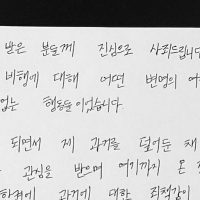 받은 분들께 진심으로 사죄드립니다
비행에 대해 어떤 변명의 여
없는 행동들이었습니다.
되면서 제 과거를 덮어둔 채
관심을 받으며 여기까지 온 것
과거에 대한 죄책감이